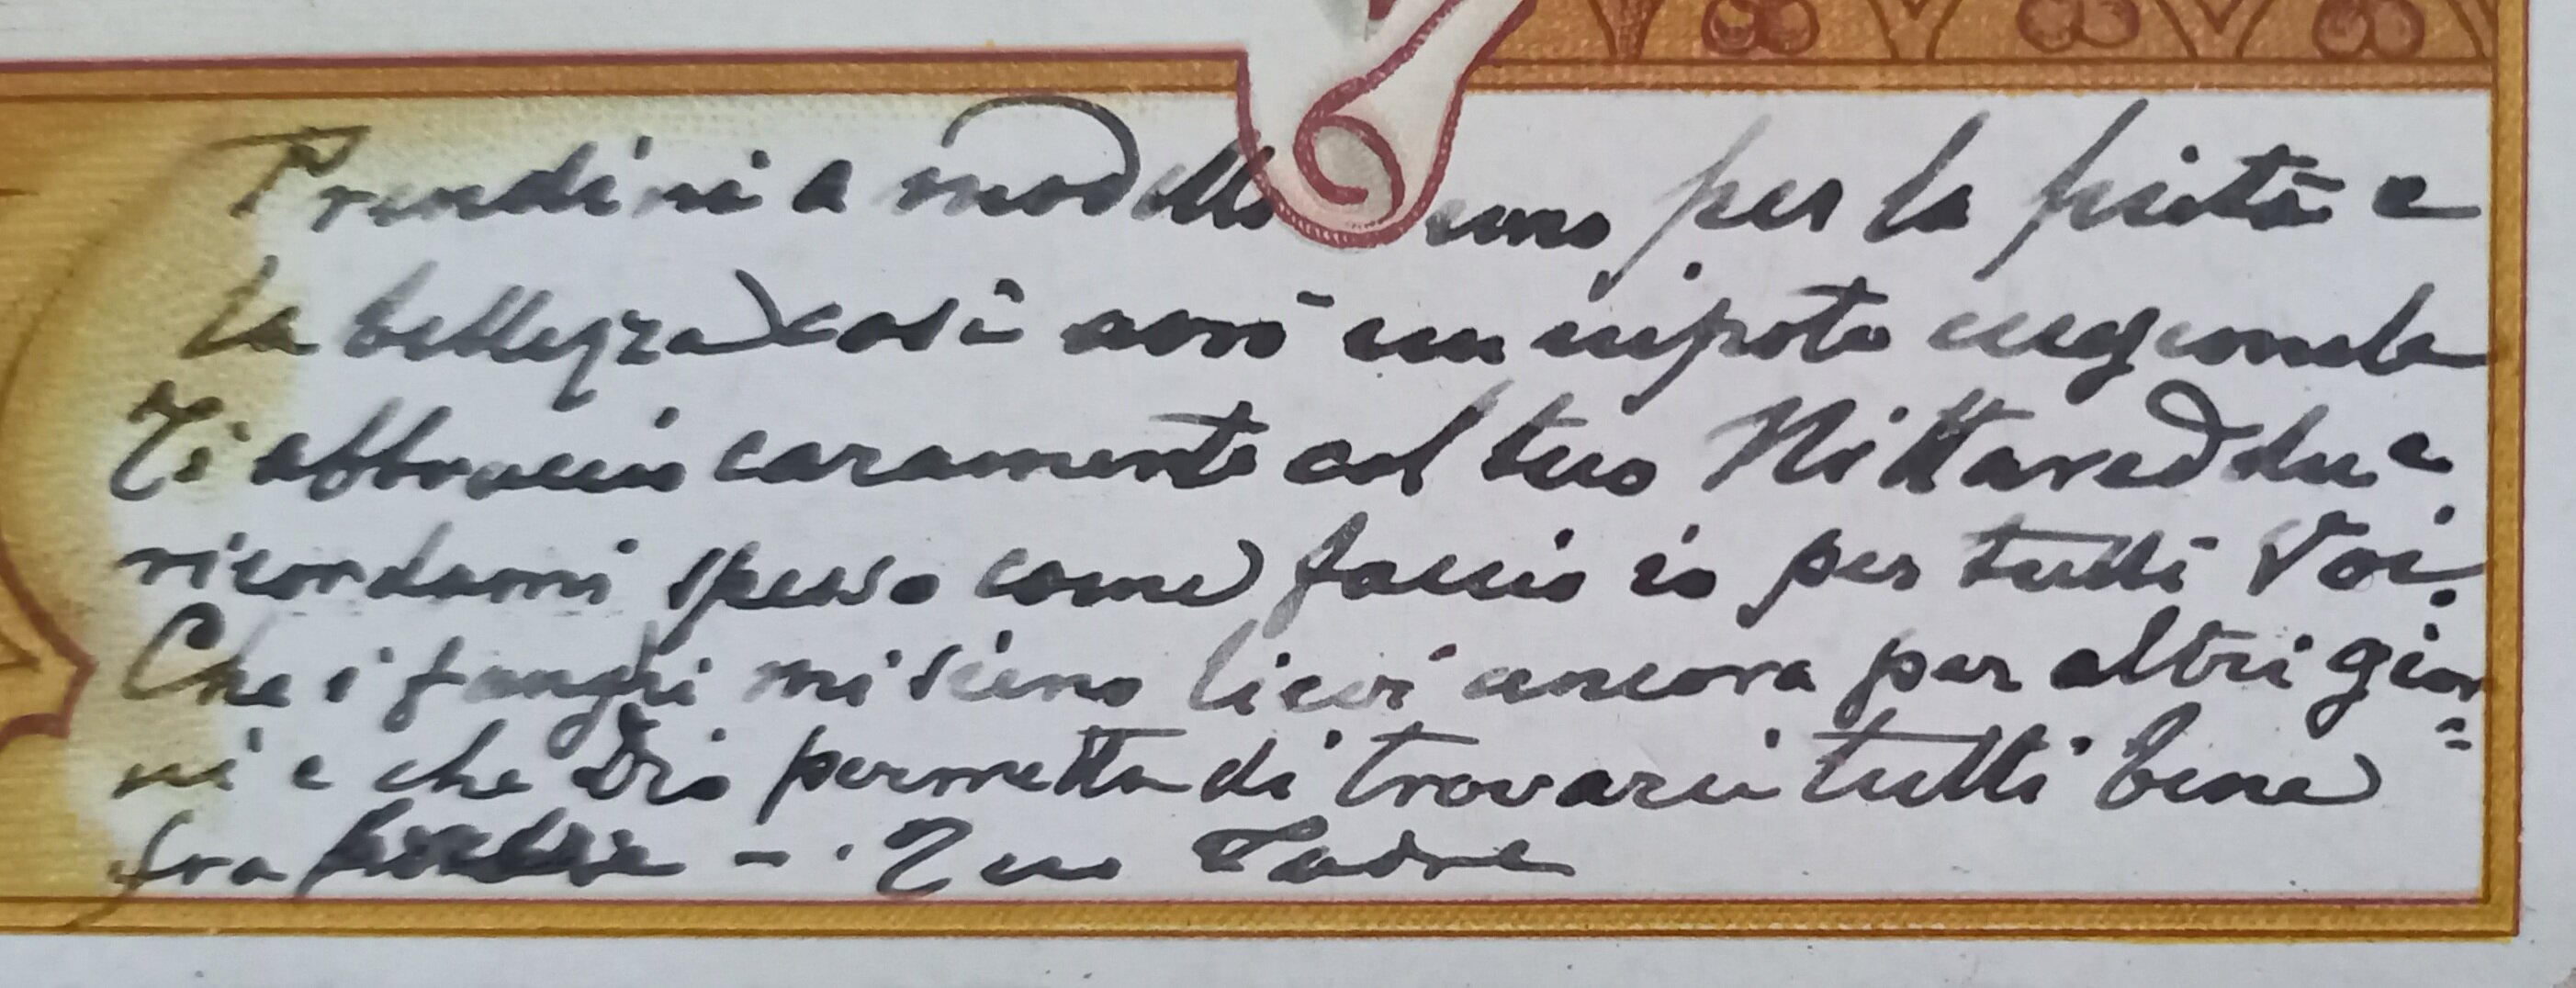 Prendini a modello uno per la pietà e
la bellezza così avrò un nipote eugionale
Ti abbraccio caramente col tuo Nittareddu e
ricordami spesso come faccio io per tutti Voi.
Che i fanghi mi sieno lievi ancora per altri gior=
ni e che Dio permetta di trovarci tutti bene
fra -. Tuo Padre